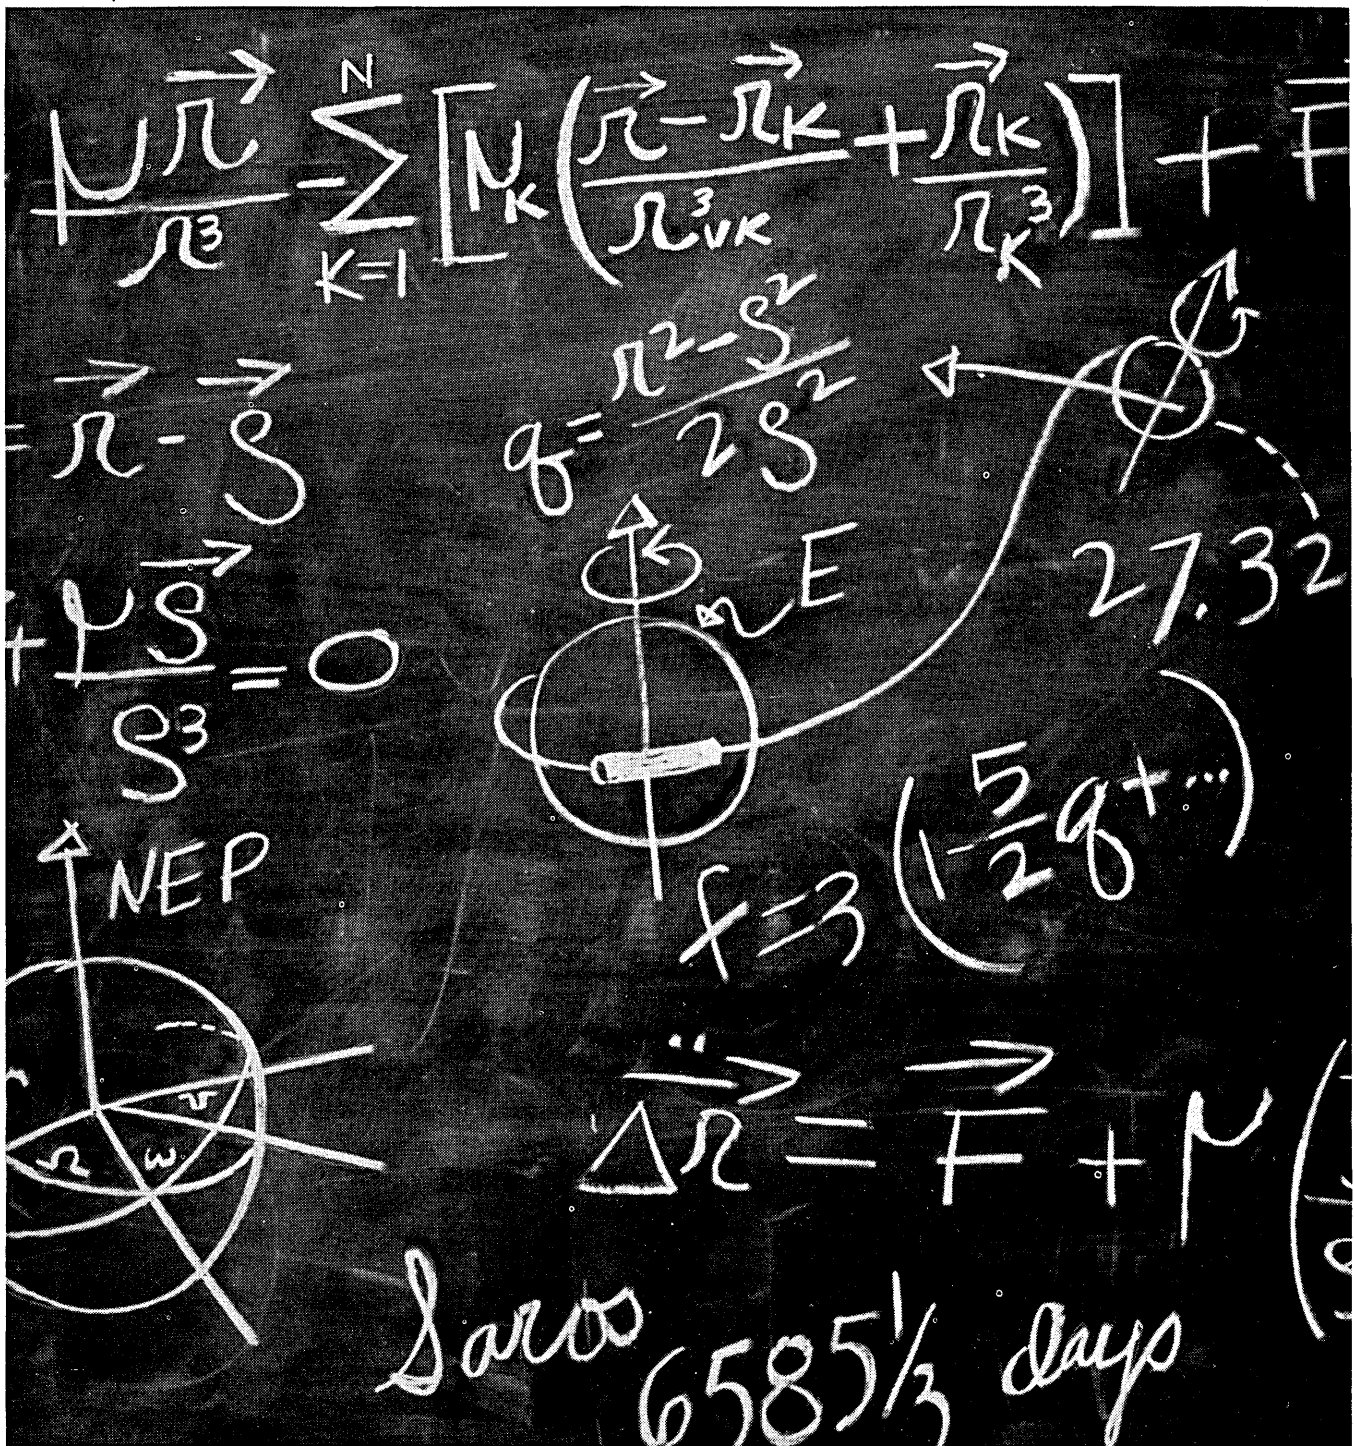 μr⃗/r³ - Σ_{K=1}^{N} [μ_K ((r⃗ - r⃗_K)/r³_{VK} + r⃗_K/r_K³)] + F⃗
= r⃗ - ρ⃗
q = (r² - ρ²)/2ρ²
E
27.32
+ μρ⃗/ρ³ = 0
f = 3 (1 - 5/2 q + ...)
NEP
v
Ω ω
Δr⃗̈ = F⃗ + μ (
Saros
6585 1/3 days